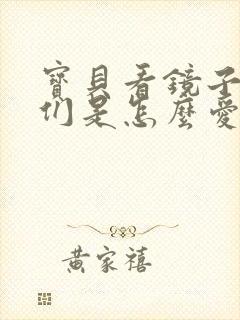 寶貝看鏡子
们是怎麼愛
黃家禧